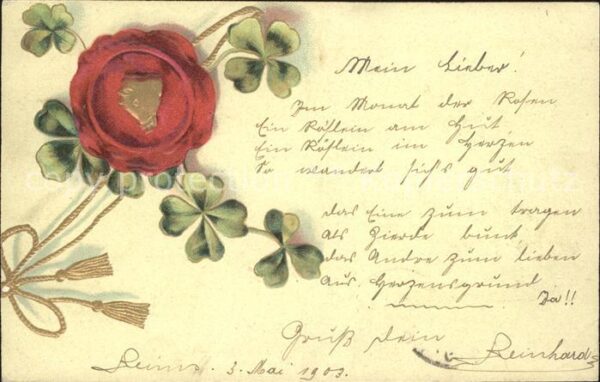 Mein Lieber!
Im Monat der Rosen
Ein Röslein am Hut,
Ein Röslein im Herzen
So wandert sich's gut
das Eine zum tragen
als Zierde bunt
das Andre zum lieben
aus Herzensgrund
Ja!!
Gruß dein
Reinhard
3. Mai 1903.